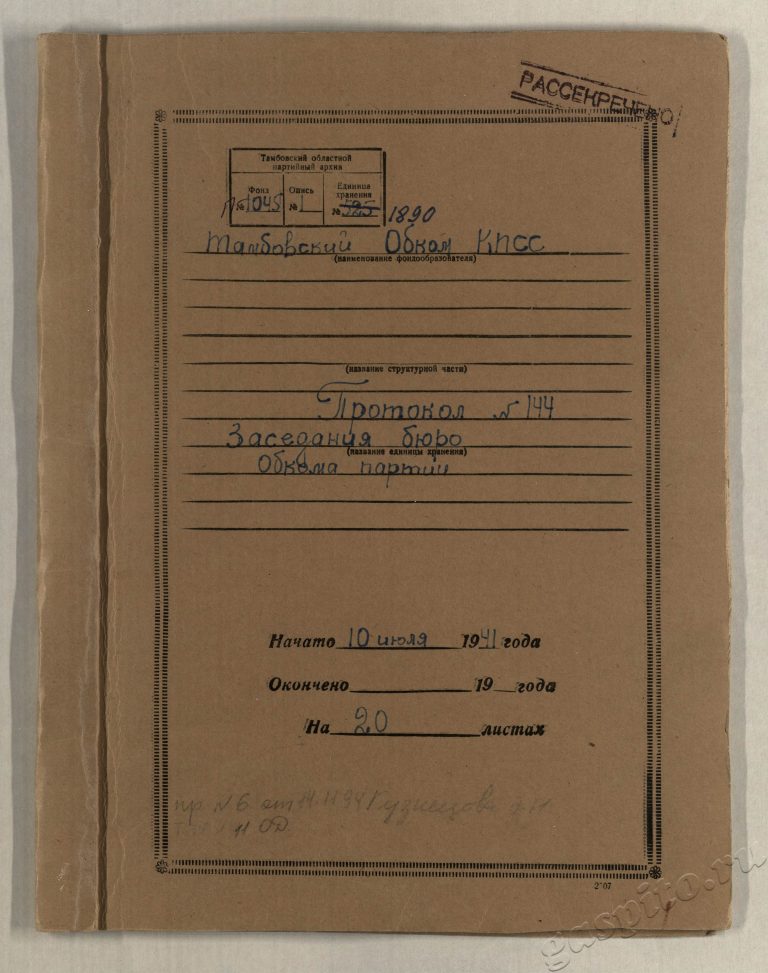 РАССЕКРЕЧЕНО
Тамбовский областной
партийный архив
Фонд Опись Единица
хранения
№ 1045 № 1 № 595 1890
Тамбовский Обком КПСС
(наименование фондообразователя)
(название структурной части)
Протокол № 144
Заседания бюро
(название единицы хранения)
Обкома партии
Начато 10 июля 1941 года
Окончено 19 года
На 20 листах
пр № 6 от 14.11.94 Кузнецова
11 ОД
guspito.ru